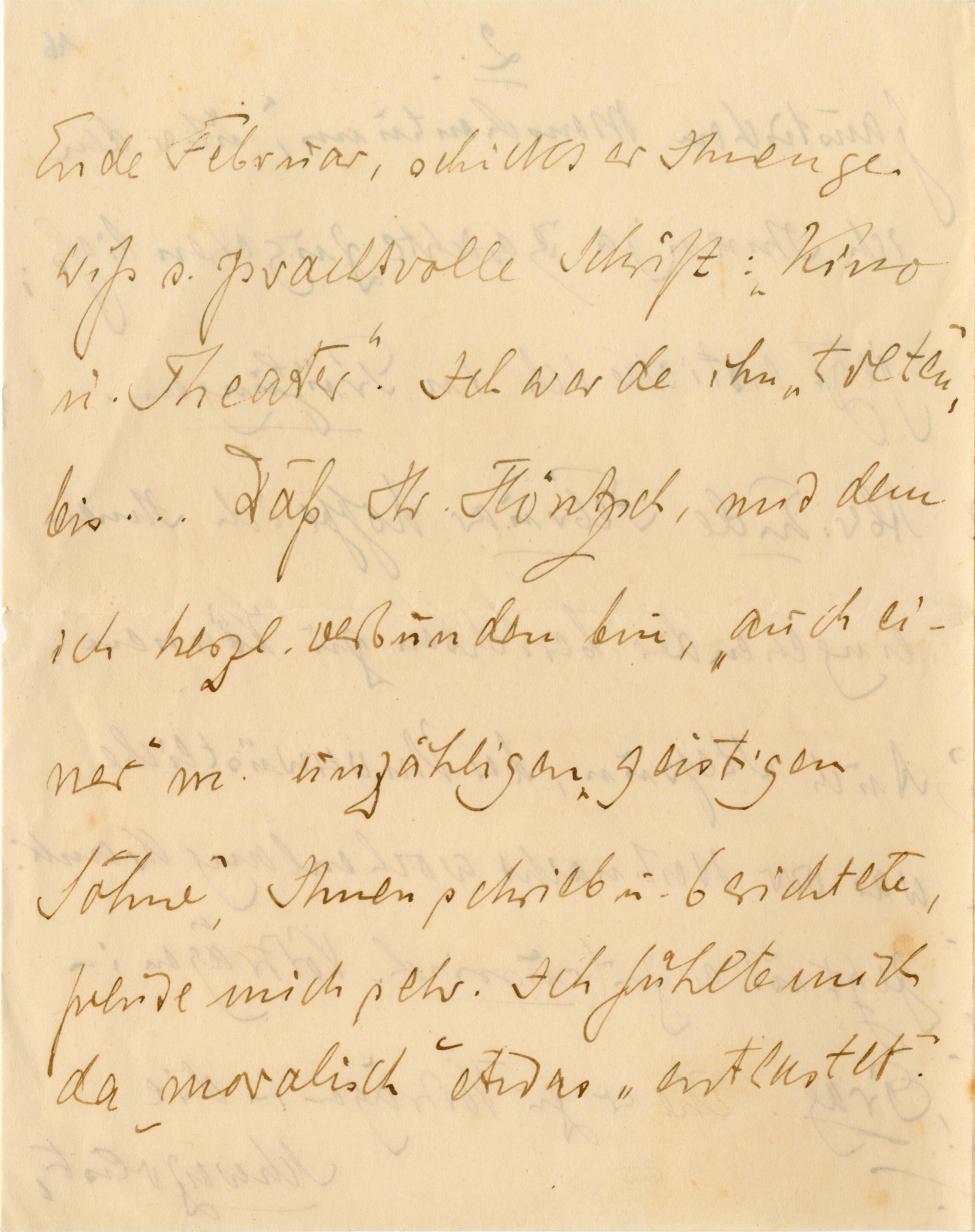 Ende Februar, schickt er Ihnen ge-
wiß s. prachtvolle Schrift: „Kino
u. Theater“. Ich werde ihn „treten“,
bis... Daß Hr. , mit dem
ich herzl. verbunden bin, „auch ei-
ner m. unzähligen „geistigen
Söhne“, Ihnen schrieb u. berichtete,
freute mich sehr. Ich fühlte mich
da moralisch etwas „entlastet“.